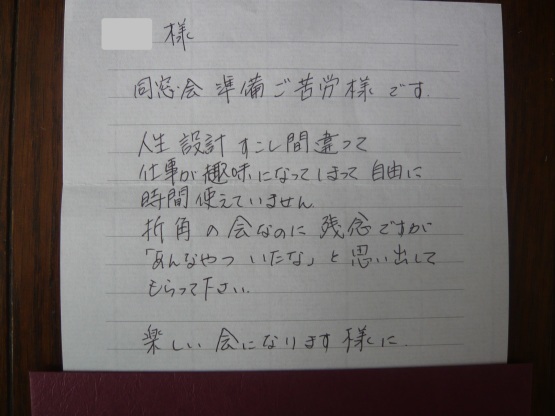 様
同窓会 準備ご苦労様です.
人生設計すこし間違って
仕事が趣味になってしまって自由に
時間使えていません
折角の会なのに残念ですが
「あんなやついたな」と思い出して
もらって下さい.
楽しい会になります様に.